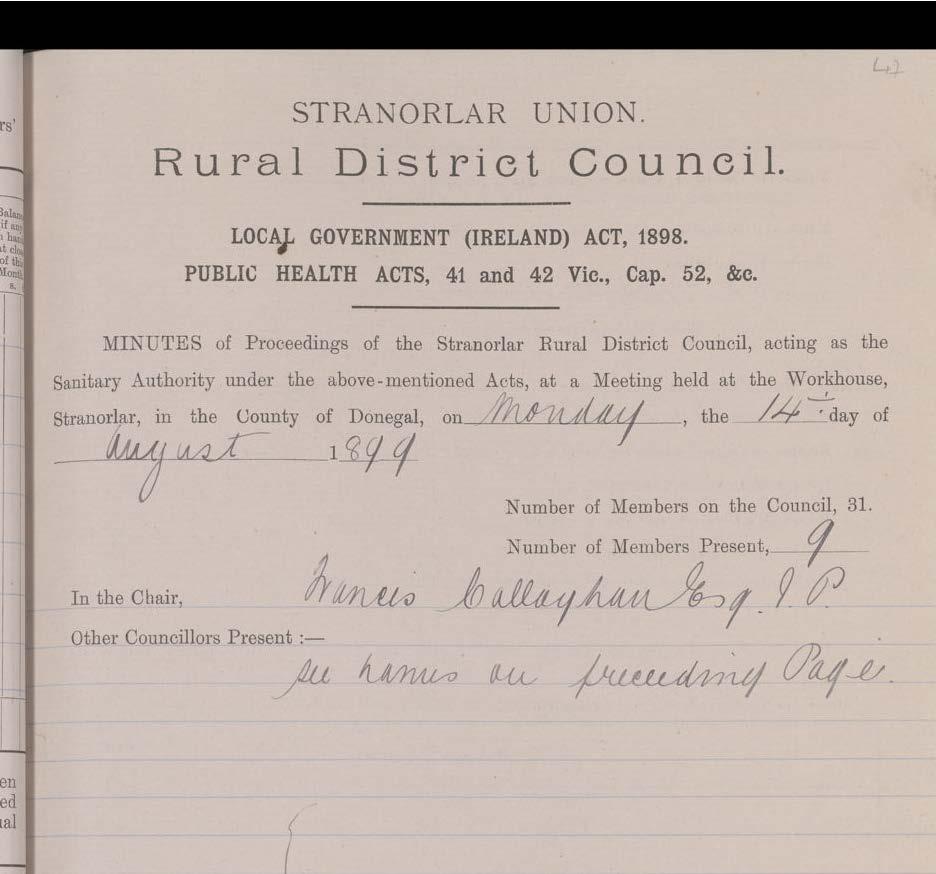 47
STRANORLAR UNION.
Rural District Council.
LOCAL GOVERNMENT (IRELAND) ACT, 1898.
PUBLIC HEALTH ACTS, 41 and 42 Vic., Cap. 52, &c.
MINUTES of Proceedings of the Stranorlar Rural District Council, acting as the
Sanitary Authority under the above-mentioned Acts, at a Meeting held at the Workhouse,
Stranorlar, in the County of Donegal, on Monday, the 14th day of
August 1899
Number of Members on the Council, 31.
Number of Members Present, 9
In the Chair, Francis Callaghan Esq. J. P.
Other Councillors Present :—
see names on preceeding Page.
rs'
Balan
if any
n han
at clo
of th
Month
s.
en
ed
ual